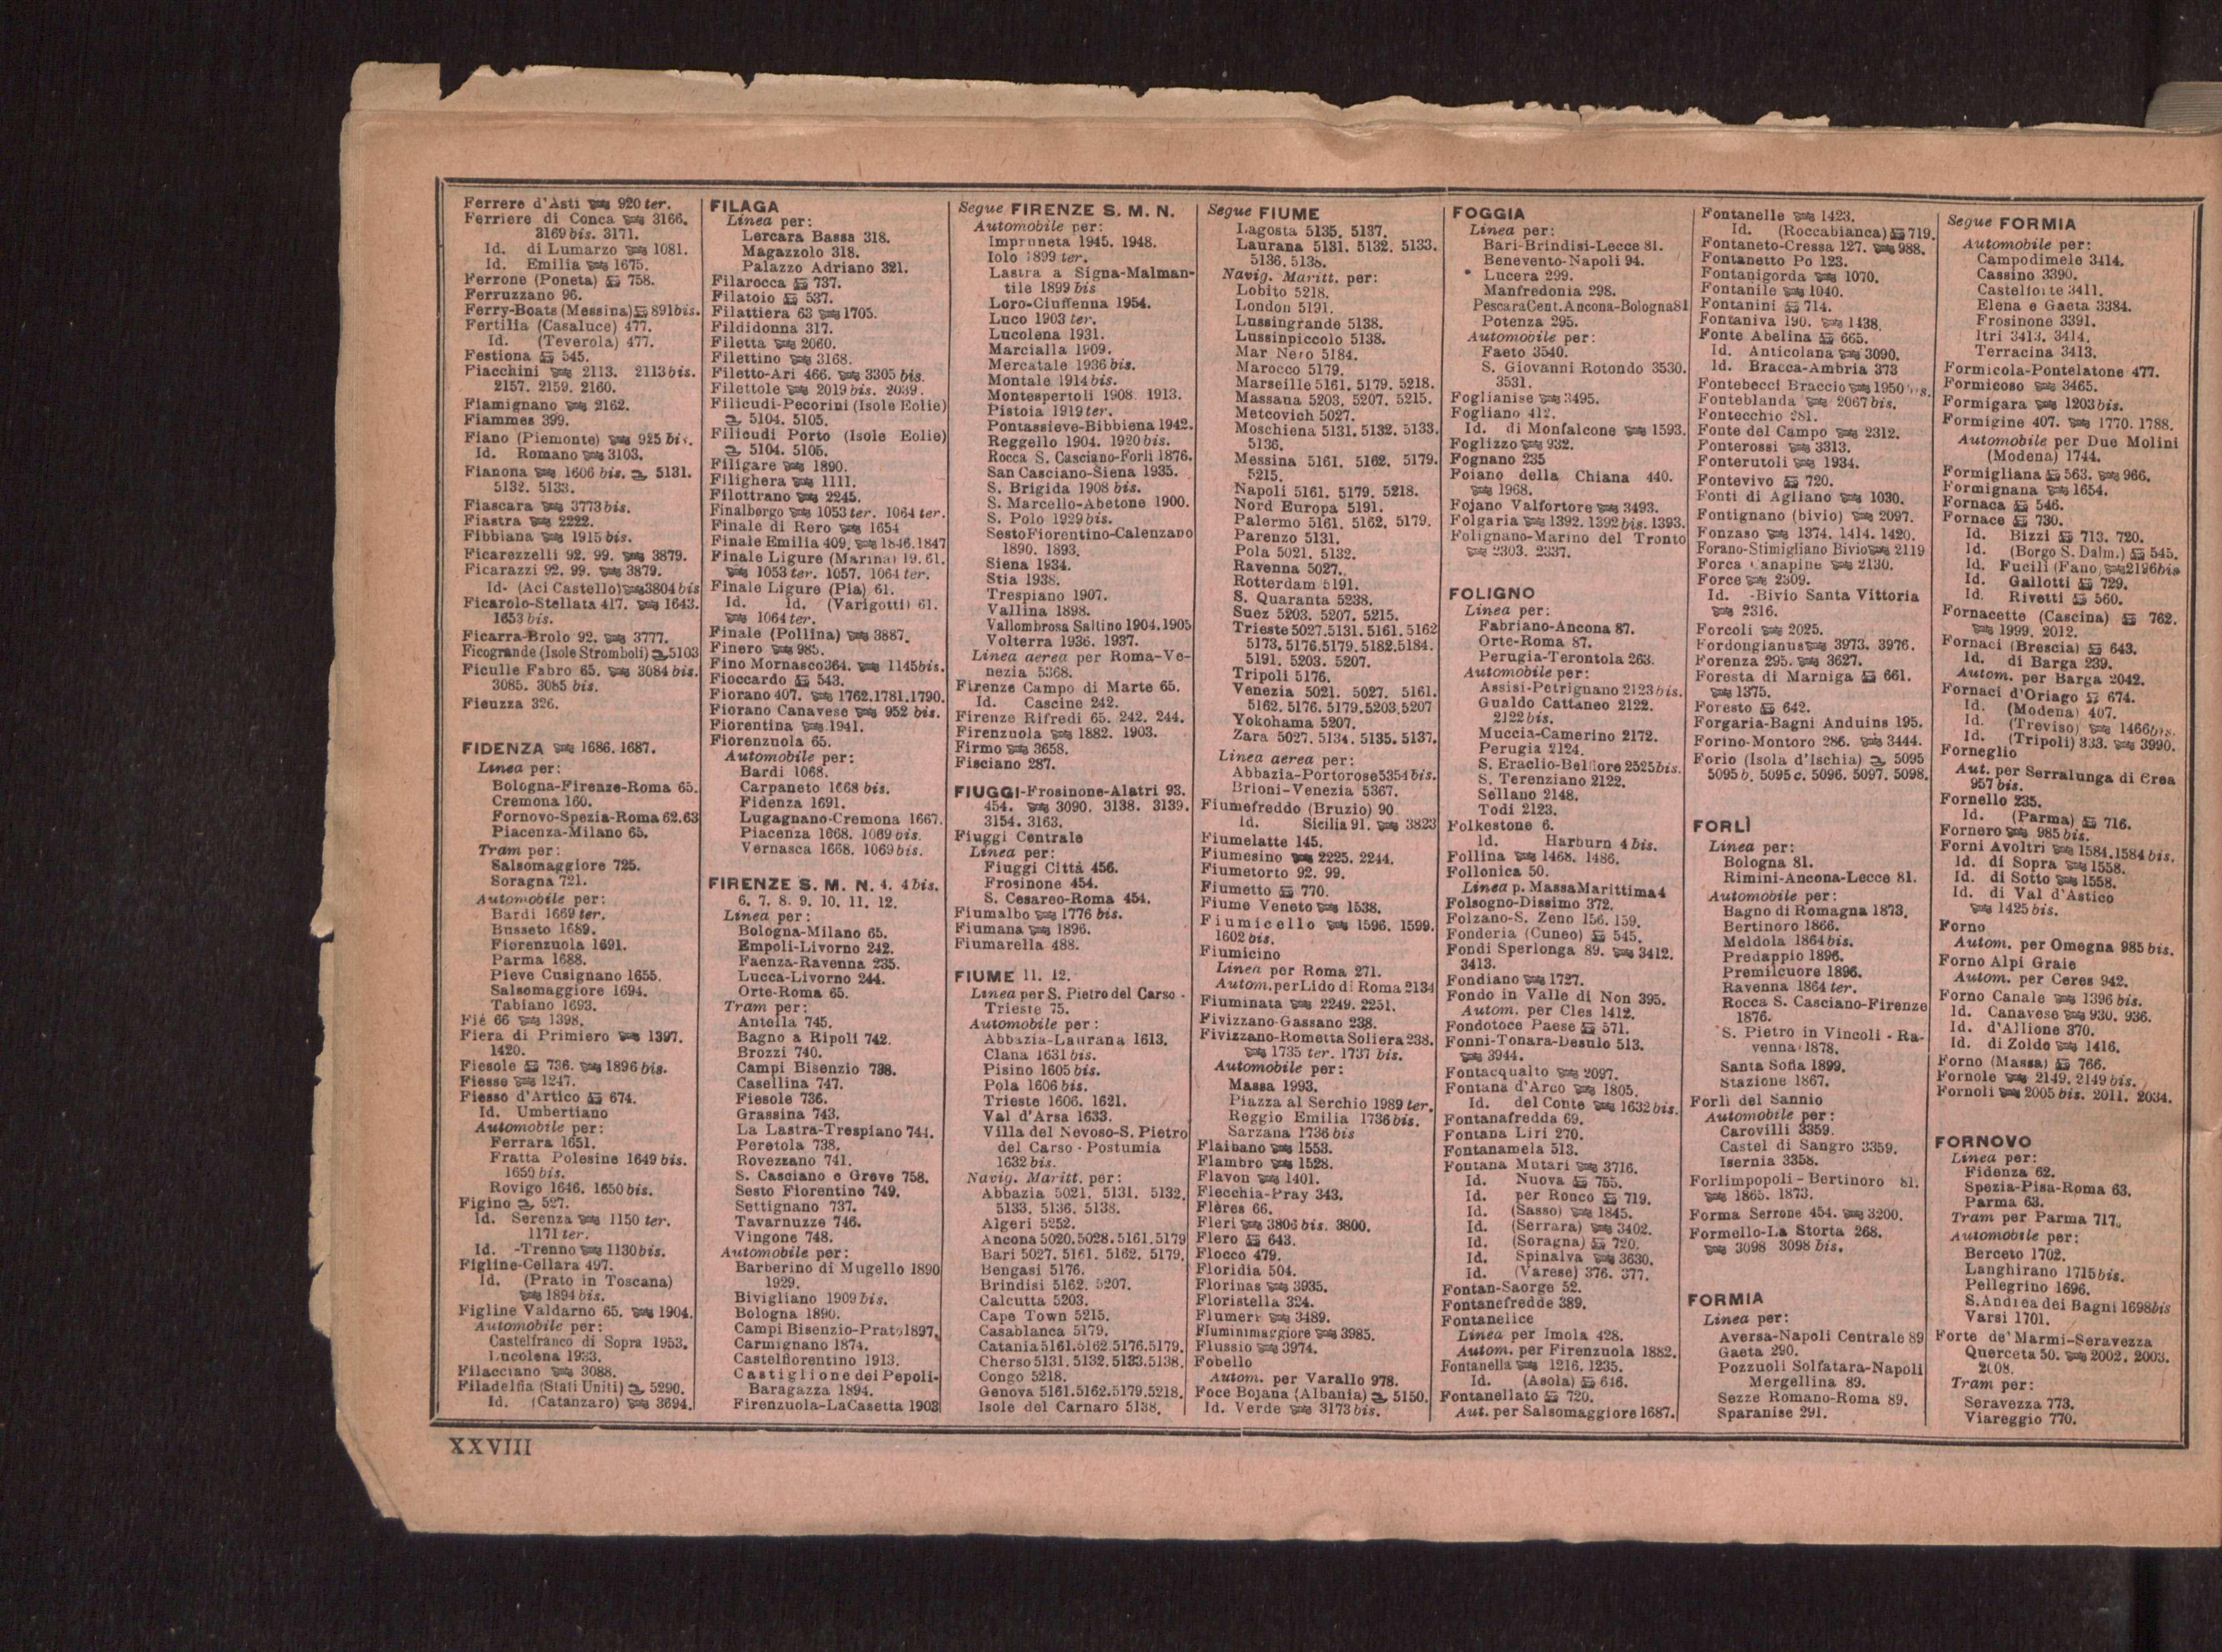 Ferrere d'Asti 920 ter.
Ferriere di Conca 3166.
3169 bis. 3171.
Id. di Lumarzo 1081.
Id. Emilia 1675.
Ferrone (Poneta) 758.
Ferruzzano 96.
Ferry-Boats (Messina) 891 bis.
Fertilia (Casaluce) 477.
Id. (Teverola) 477.
Festiona 545.
Fiacchini 2113. 2113 bis.
2157. 2159. 2160.
Fiamignano 2162.
Fiammes 399.
Fiano (Piemonte) 925 bis.
Id. Romano 3103.
Fianona 1606 bis. 5131.
5132. 5133.
Fiascara 3773 bis.
Fiastra 2222.
Fibbiana 1915 bis.
Ficarezzelli 92. 99. 3879.
Ficarazzi 92. 99. 3879.
Id. (Aci Castello) 3804 bis
Ficarolo-Stellata 417. 1643.
1653 bis.
Ficarra-Brolo 92. 3777.
Ficogrande (Isole Stromboli) 5103
Ficulle Fabro 65. 3084 bis.
3085. 3085 bis.
Ficuzza 326.
FIDENZA 1686. 1687.
Linea per:
Bologna-Firenze-Roma 65.
Cremona 160.
Fornovo-Spezia-Roma 62.63
Piacenza-Milano 65.
Tram per:
Salsomaggiore 725.
Soragna 721.
Automobile per:
Bardi 1669 ter.
Busseto 1689.
Fiorenzuola 1691.
Parma 1688.
Pieve Cusignano 1655.
Salsomaggiore 1694.
Tabiano 1693.
Fié 66 1398.
Fiera di Primiero 1397.
1420.
Fiesole 736. 1896 bis.
Fiesse 1247.
Fiesso d'Artico 674.
Id. Umbertiano
Automobile per:
Ferrara 1651.
Fratta Polesine 1649 bis.
1650 bis.
Rovigo 1646. 1650 bis.
Figino 527.
Id. Serenza 1150 ter.
1171 ter.
Id. -Trenno 1130 bis.
Figline-Cellara 497.
Id. (Prato in Toscana)
1894 bis.
Figline Valdarno 65. 1904.
Automobile per:
Castelfranco di Sopra 1953.
Lucolena 1933.
Filacciano 3088.
Filadelfia (Stati Uniti) 5290.
Id. (Catanzaro) 3694.
FILAGA
Linea per:
Lercara Bassa 318.
Magazzolo 318.
Palazzo Adriano 321.
Filarocca 737.
Filatoio 537.
Filattiera 63 1705.
Fildidonna 317.
Filetta 2060.
Filettino 3168.
Filetto-Ari 466. 3305 bis.
Filettole 2019 bis. 2039.
Filicudi-Pecorini (Isole Eolie)
5104. 5105.
Filicudi Porto (Isole Eolie)
5104. 5105.
Filigare 1890.
Filighera 1111.
Filottrano 2245.
Finalborgo 1053 ter. 1064 ter.
Finale di Rero 1654
Finale Emilia 409. 1846.1847
Finale Ligure (Marina) 19. 61.
1053 ter. 1057. 1064 ter.
Finale Ligure (Pia) 61.
Id. Id. (Varigotti) 61.
1064 ter.
Finale (Pollina) 3887.
Finero 985.
Fino Mornasco 364. 1145 bis.
Fioccardo 543.
Fiorano 407. 1762.1781.1790.
Fiorano Canavese 952 bis.
Fiorentina 1941.
Fiorenzuola 65.
Automobile per:
Bardi 1068.
Carpaneto 1668 bis.
Fidenza 1691.
Lugagnano-Cremona 1667.
Piacenza 1668. 1069 bis.
Vernasca 1668. 1069 bis.
FIRENZE S. M. N. 4. 4 bis.
6. 7. 8. 9. 10. 11. 12.
Linea per:
Bologna-Milano 65.
Empoli-Livorno 242.
Faenza-Ravenna 235.
Lucca-Livorno 244.
Orte-Roma 65.
Tram per:
Antella 745.
Bagno a Ripoli 742.
Brozzi 740.
Campi Bisenzio 738.
Casellina 747.
Fiesole 736.
Grassina 743.
La Lastra-Trespiano 744.
Peretola 738.
Rovezzano 741.
S. Casciano e Greve 758.
Sesto Fiorentino 749.
Settignano 737.
Tavarnuzze 746.
Vingone 748.
Automobile per:
Barberino di Mugello 1890
1929.
Bivigliano 1909 bis.
Bologna 1890.
Campi Bisenzio-Prato 1897.
Carmignano 1874.
Castelfiorentino 1913.
Castiglione dei Pepoli-
Baragazza 1894.
Firenzuola-La Casetta 1903
Segue FIRENZE S. M. N.
Automobile per:
Impruneta 1945. 1948.
Iolo 1899 ter.
Lastra a Signa-Malman-
tile 1899 bis
Loro-Ciuffenna 1954.
Luco 1903 ter.
Lucolena 1931.
Marcialla 1909.
Mercatale 1936 bis.
Montale 1914 bis.
Montespertoli 1908. 1913.
Pistoia 1919 ter.
Pontassieve-Bibbiena 1942.
Reggello 1904. 1920 bis.
Rocca S. Casciano-Forlì 1876.
San Casciano-Siena 1935.
S. Brigida 1908 bis.
S. Marcello-Abetone 1900.
S. Polo 1929 bis.
Sesto Fiorentino-Calenzano
1890. 1893.
Siena 1934.
Stia 1938.
Trespiano 1907.
Vallina 1898.
Vallombrosa Saltino 1904.1905
Volterra 1936. 1937.
Linea aerea per Roma-Ve-
nezia 5368.
Firenze Campo di Marte 65.
Id. Cascine 242.
Firenze Rifredi 65. 242. 244.
Firenzuola 1882. 1903.
Firmo 3658.
Fisciano 287.
FIUGGI-Frosinone-Alatri 93.
454. 3090. 3138. 3139.
3154. 3163.
Fiuggi Centrale
Linea per:
Fiuggi Città 456.
Frosinone 454.
S. Cesareo-Roma 454.
Fiumalbo 1776 bis.
Fiumana 1896.
Fiumarella 488.
FIUME 11. 12.
Linea per S. Pietro del Carso -
Trieste 75.
Automobile per:
Abbazia-Laurana 1613.
Clana 1631 bis.
Pisino 1605 bis.
Pola 1606 bis.
Trieste 1606. 1621.
Val d'Arsa 1633.
Villa del Nevoso-S. Pietro
del Carso - Postumia
1632 bis.
Navig. Maritt. per:
Abbazia 5021. 5131. 5132.
5133. 5136. 5138.
Algeri 5252.
Ancona 5020.5028.5161.5179
Bari 5027. 5161. 5162. 5179.
Bengasi 5176.
Brindisi 5162. 5207.
Calcutta 5203.
Cape Town 5215.
Casablanca 5179.
Catania 5161.5162.5176.5179.
Cherso 5131. 5132. 5133.5138.
Congo 5218.
Genova 5161.5162.5179.5218.
Isole del Carnaro 5138.
Segue FIUME
Lagosta 5135. 5137.
Laurana 5131. 5132. 5133.
5136. 5138.
Navig. Maritt. per:
Lobito 5218.
London 5191.
Lussingrande 5138.
Lussinpiccolo 5138.
Mar Nero 5184.
Marocco 5179.
Marseille 5161. 5179. 5218.
Massaua 5203. 5207. 5215.
Metcovich 5027.
Moschiena 5131. 5132. 5133.
5136.
Messina 5161. 5162. 5179.
5215.
Napoli 5161. 5179. 5218.
Nord Europa 5191.
Palermo 5161. 5162. 5179.
Parenzo 5131.
Pola 5021. 5132.
Ravenna 5027.
Rotterdam 5191.
S. Quaranta 5238.
Suez 5203. 5207. 5215.
Trieste 5027.5131.5161.5162
5173. 5176.5179.5182.5184.
5191. 5203. 5207.
Tripoli 5176.
Venezia 5021. 5027. 5161.
5162. 5176. 5179.5203.5207
Yokohama 5207.
Zara 5027. 5134. 5135. 5137.
Linea aerea per:
Abbazia-Portorose 5354 bis.
Brioni-Venezia 5367.
Fiumefreddo (Bruzio) 90
Id. Sicilia 91. 3823
Fiumelatte 145.
Fiumesino 2225. 2244.
Fiumetorto 92. 99.
Fiumetto 770.
Fiume Veneto 1538.
Fiumicello 1596. 1599.
1602 bis.
Fiumicino
Linea per Roma 271.
Autom. per Lido di Roma 2134
Fiuminata 2249. 2251.
Fivizzano-Gassano 238.
Fivizzano-Rometta Soliera 238.
1735 ter. 1737 bis.
Automobile per:
Massa 1993.
Piazza al Serchio 1989 ter.
Reggio Emilia 1736 bis.
Sarzana 1736 bis
Flaibano 1553.
Flambro 1528.
Flavon 1401.
Flecchia-Pray 343.
Flères 66.
Fleri 3806 bis. 3800.
Flero 643.
Flocco 479.
Floridia 504.
Florinas 3935.
Floristella 324.
Flumeri 3489.
Fluminimaggiore 3985.
Flussio 3974.
Fobello
Autom. per Varallo 978.
Foce Bojana (Albania) 5150.
Id. Verde 3173 bis.
FOGGIA
Linea per:
Bari-Brindisi-Lecce 81.
Benevento-Napoli 94.
Lucera 299.
Manfredonia 298.
Pescara Cent. Ancona-Bologna 81
Potenza 295.
Automobile per:
Faeto 3540.
S. Giovanni Rotondo 3530.
3531.
Foglianise 3495.
Fogliano 412.
Id. di Monfalcone 1593.
Foglizzo 932.
Fognano 235
Foiano della Chiana 440.
1968.
Fojano Valfortore 3493.
Folgaria 1392. 1392 bis. 1393.
Folignano-Marino del Tronto
2303. 2337.
FOLIGNO
Linea per:
Fabriano-Ancona 87.
Orte-Roma 87.
Perugia-Terontola 263.
Automobile per:
Assisi-Petrignano 2123 bis.
Gualdo Cattaneo 2122.
2122 bis.
Muccia-Camerino 2172.
Perugia 2124.
S. Eraclio-Belfiore 2525 bis.
S. Terenziano 2122.
Sellano 2148.
Todi 2123.
Folkestone 6.
Id. Harburn 4 bis.
Follina 1468. 1486.
Follonica 50.
Linea p. Massa Marittima 4
Folsogno-Dissimo 372.
Folzano-S. Zeno 156. 159.
Fonderia (Cuneo) 545.
Fondi Sperlonga 89. 3412.
3413.
Fondiano 1727.
Fondo in Valle di Non 395.
Autom. per Cles 1412.
Fondotoce Paese 571.
Fonni-Tonara-Desulo 513.
3944.
Fontacqualto 2097.
Fontana d'Arco 1805.
Id. del Conte 1632 bis.
Fontanafredda 69.
Fontana Liri 270.
Fontanamela 513.
Fontana Mutari 3716.
Id. Nuova 755.
Id. per Ronco 719.
Id. (Sasso) 1845.
Id. (Serrara) 3402.
Id. (Soragna) 720.
Id. Spinalva 3630.
Id. (Varese) 376. 377.
Fontan-Saorge 52.
Fontanefredde 389.
Fontanelice
Linea per Imola 428.
Autom. per Firenzuola 1882.
Fontanella 1216. 1235.
Id. (Asola) 646.
Fontanellato 720.
Aut. per Salsomaggiore 1687.
Fontanelle 1423.
Id. (Roccabianca) 719.
Fontaneto-Cressa 127. 988.
Fontanetto Po 123.
Fontanigorda 1070.
Fontanile 1040.
Fontanini 714.
Fontaniva 190. 1438.
Fonte Abelina 665.
Id. Anticolana 3090.
Id. Bracca-Ambria 373
Fontebecci Braccio 1950
Fonteblanda 2067 bis.
Fontecchio 281.
Fonte del Campo 2312.
Fonterossi 3313.
Fonterutoli 1934.
Fontevivo 720.
Fonti di Agliano 1030.
Fontignano (bivio) 2097.
Fonzaso 1374. 1414. 1420.
Forano-Stimigliano Bivio 2119
Forca Canapine 2130.
Force 2309.
Id. -Bivio Santa Vittoria
2316.
Forcoli 2025.
Fordongianus 3973. 3976.
Forenza 295. 3627.
Foresta di Marniga 661.
1375.
Foresto 642.
Forgaria-Bagni Anduins 195.
Forino-Montoro 286. 3444.
Forio (Isola d'Ischia) 5095
5095 b. 5095 c. 5096. 5097. 5098.
FORLÌ
Linea per:
Bologna 81.
Rimini-Ancona-Lecce 81.
Automobile per:
Bagno di Romagna 1873.
Bertinoro 1866.
Meldola 1864 bis.
Predappio 1896.
Premilcuore 1896.
Ravenna 1864 ter.
Rocca S. Casciano-Firenze
1876.
S. Pietro in Vincoli - Ra-
venna 1878.
Santa Sofia 1899.
Stazione 1867.
Forlì del Sannio
Automobile per:
Carovilli 3359.
Castel di Sangro 3359.
Isernia 3358.
Forlimpopoli - Bertinoro 81.
1865. 1873.
Forma Serrone 454. 3200.
Formello-La Storta 268.
3098 3098 bis.
FORMIA
Linea per:
Aversa-Napoli Centrale 89
Gaeta 290.
Pozzuoli Solfatara-Napoli
Mergellina 89.
Sezze Romano-Roma 89.
Sparanise 291.
Segue FORMIA
Automobile per:
Campodimele 3414.
Cassino 3390.
Castelforte 3411.
Elena e Gaeta 3384.
Frosinone 3391.
Itri 3413. 3414.
Terracina 3413.
Formicola-Pontelatone 477.
Formicoso 3465.
Formigara 1203 bis.
Formigine 407. 1770. 1788.
Automobile per Due Molini
(Modena) 1744.
Formigliana 563. 966.
Formignana 1654.
Fornaca 546.
Fornace 730.
Id. Bizzi 713. 720.
Id. (Borgo S. Dalm.) 545.
Id. Fucili (Fano) 2196 bis
Id. Gallotti 729.
Id. Rivetti 560.
Fornacette (Cascina) 762.
1999. 2012.
Fornaci (Brescia) 643.
Id. di Barga 239.
Autom. per Barga 2042.
Fornaci d'Oriago 674.
Id. (Modena) 407.
Id. (Treviso) 1466 bis.
Id. (Tripoli) 333. 3990.
Forneglio
Aut. per Serralunga di Crea
957 bis.
Fornello 235.
Id. (Parma) 716.
Fornero 985 bis.
Forni Avoltri 1584.1584 bis.
Id. di Sopra 1558.
Id. di Sotto 1558.
Id. di Val d'Astico
1425 bis.
Forno
Autom. per Omegna 985 bis.
Forno Alpi Graie
Autom. per Ceres 942.
Forno Canale 1396 bis.
Id. Canavese 930. 936.
Id. d'Allione 370.
Id. di Zoldo 1416.
Forno (Massa) 766.
Fornole 2149. 2149 bis.
Fornoli 2005 bis. 2011. 2034.
FORNOVO
Linea per:
Fidenza 62.
Spezia-Pisa-Roma 63.
Parma 63.
Tram per Parma 717.
Automobile per:
Berceto 1702.
Langhirano 1715 bis.
Pellegrino 1696.
S. Andrea dei Bagni 1698 bis
Varsi 1701.
Forte de' Marmi-Seravezza
Querceta 50. 2002. 2003.
2008.
Tram per:
Seravezza 773.
Viareggio 770.
XXVIII